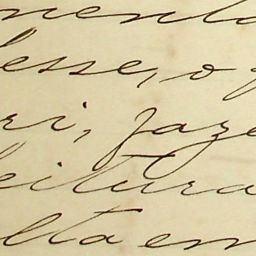 mento
esse, o
ri, faze
leitura
lta em